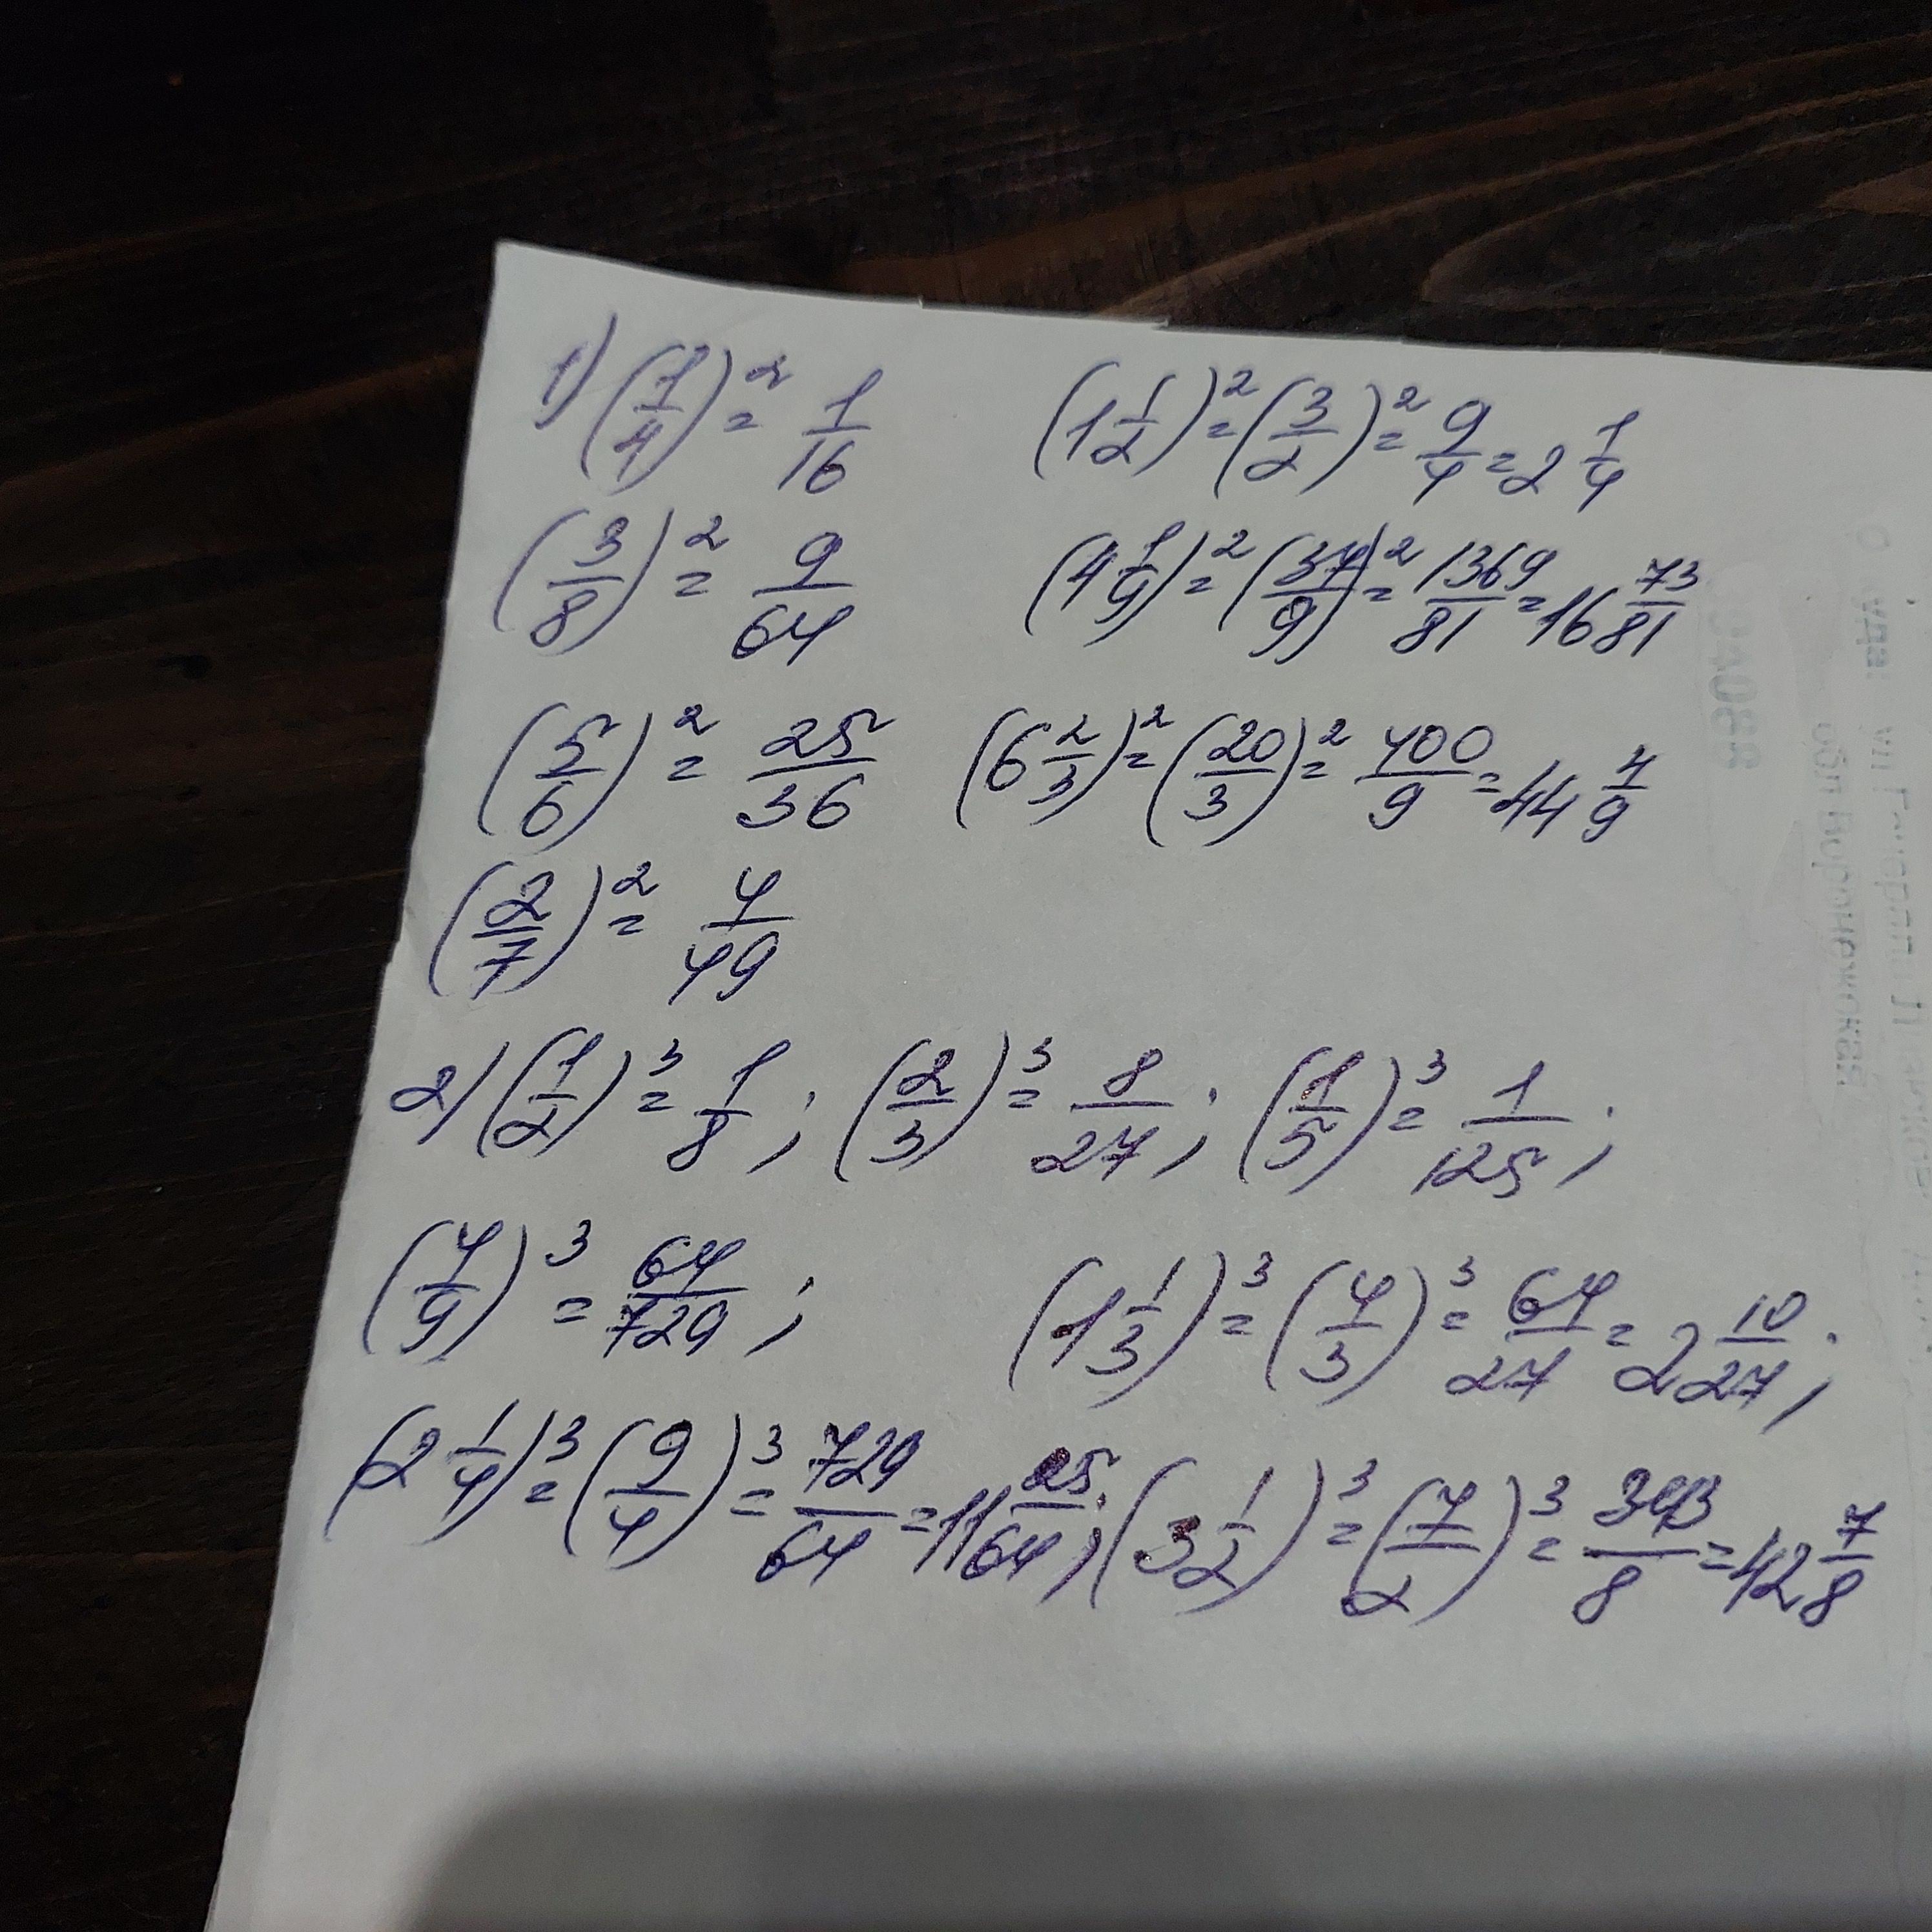 1) (1/4)² = 1/16 (1 1/2)² = (3/2)² = 9/4 = 2 1/4
(3/8)² = 9/64 (4 1/9)² = (37/9)² = 1369/81 = 16 73/81
(5/6)² = 25/36 (6 2/3)² = (20/3)² = 400/9 = 44 4/9
(2/7)² = 4/49
2) (1/2)³ = 1/8; (2/3)³ = 8/27; (1/5)³ = 1/125;
(4/9)³ = 64/729; (1 1/3)³ = (4/3)³ = 64/27 = 2 10/27;
(2 1/4)³ = (9/4)³ = 729/64 = 11 25/64; (3 1/2)³ = (7/2)³ = 343/8 = 42 7/8